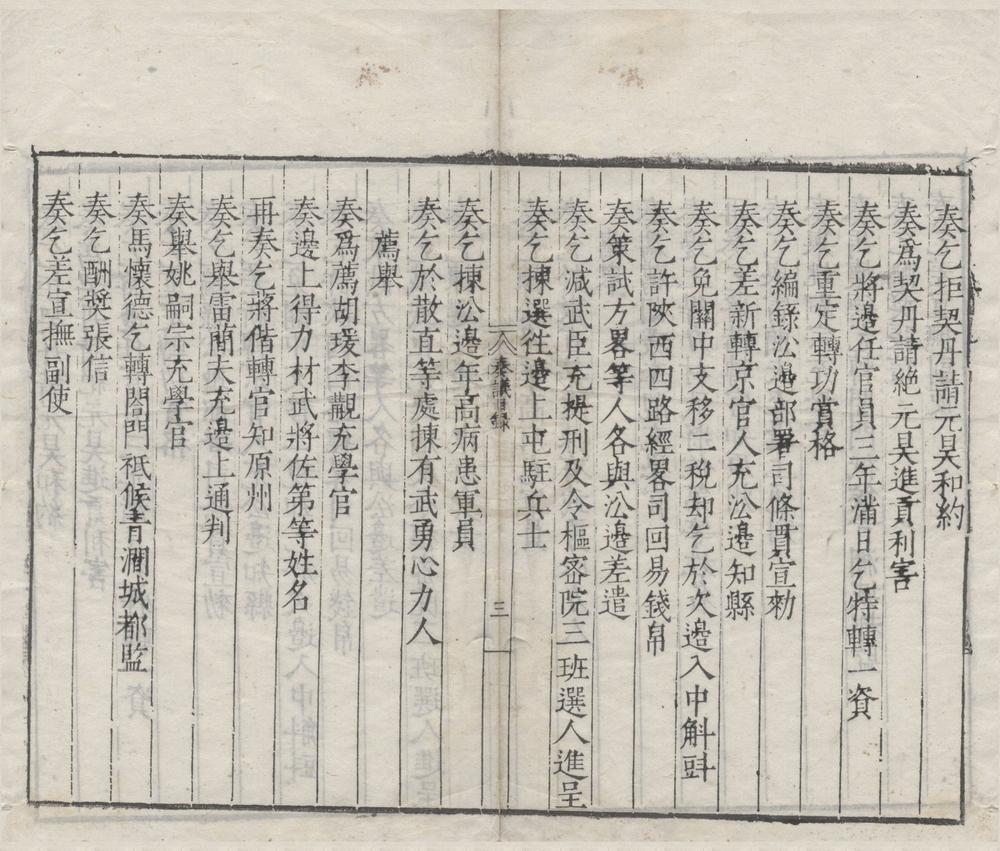 奏乞拒契丹請元昊和約
奏爲契丹請絶元昊進貢利害
奏乞將邉任官員三年滿日乞特轉一資
奏乞重定轉功賞格
奏乞編錄沿邉部署司條貫宣勑
奏乞差新轉京官人充沿邉知縣
奏乞免關中支移二稅却乞於次邉入中斛㪷
奏乞許陝西四路經畧司回易錢帛
奏策試方畧等人各與沿邉差遣
奏乞減武臣充提刑及令樞宻院三班選人進呈
奏乞揀選徃邉上屯駐兵士
奏議目錄
三
奏乞揀沿邉年高病患軍員
奏乞於散直等處揀有武勇心力人
薦舉
奏爲薦胡瑗李覯充學官
奏邉上得力材武將佐第等姓名
再奏乞蔣偕轉官知原州
奏乞舉雷簡夫充邉上通判
奏舉姚嗣宗充學官
奏馬懷德乞轉閤門祗候青澗城都監
奏乞酬奬張信
奏乞差宣撫副使